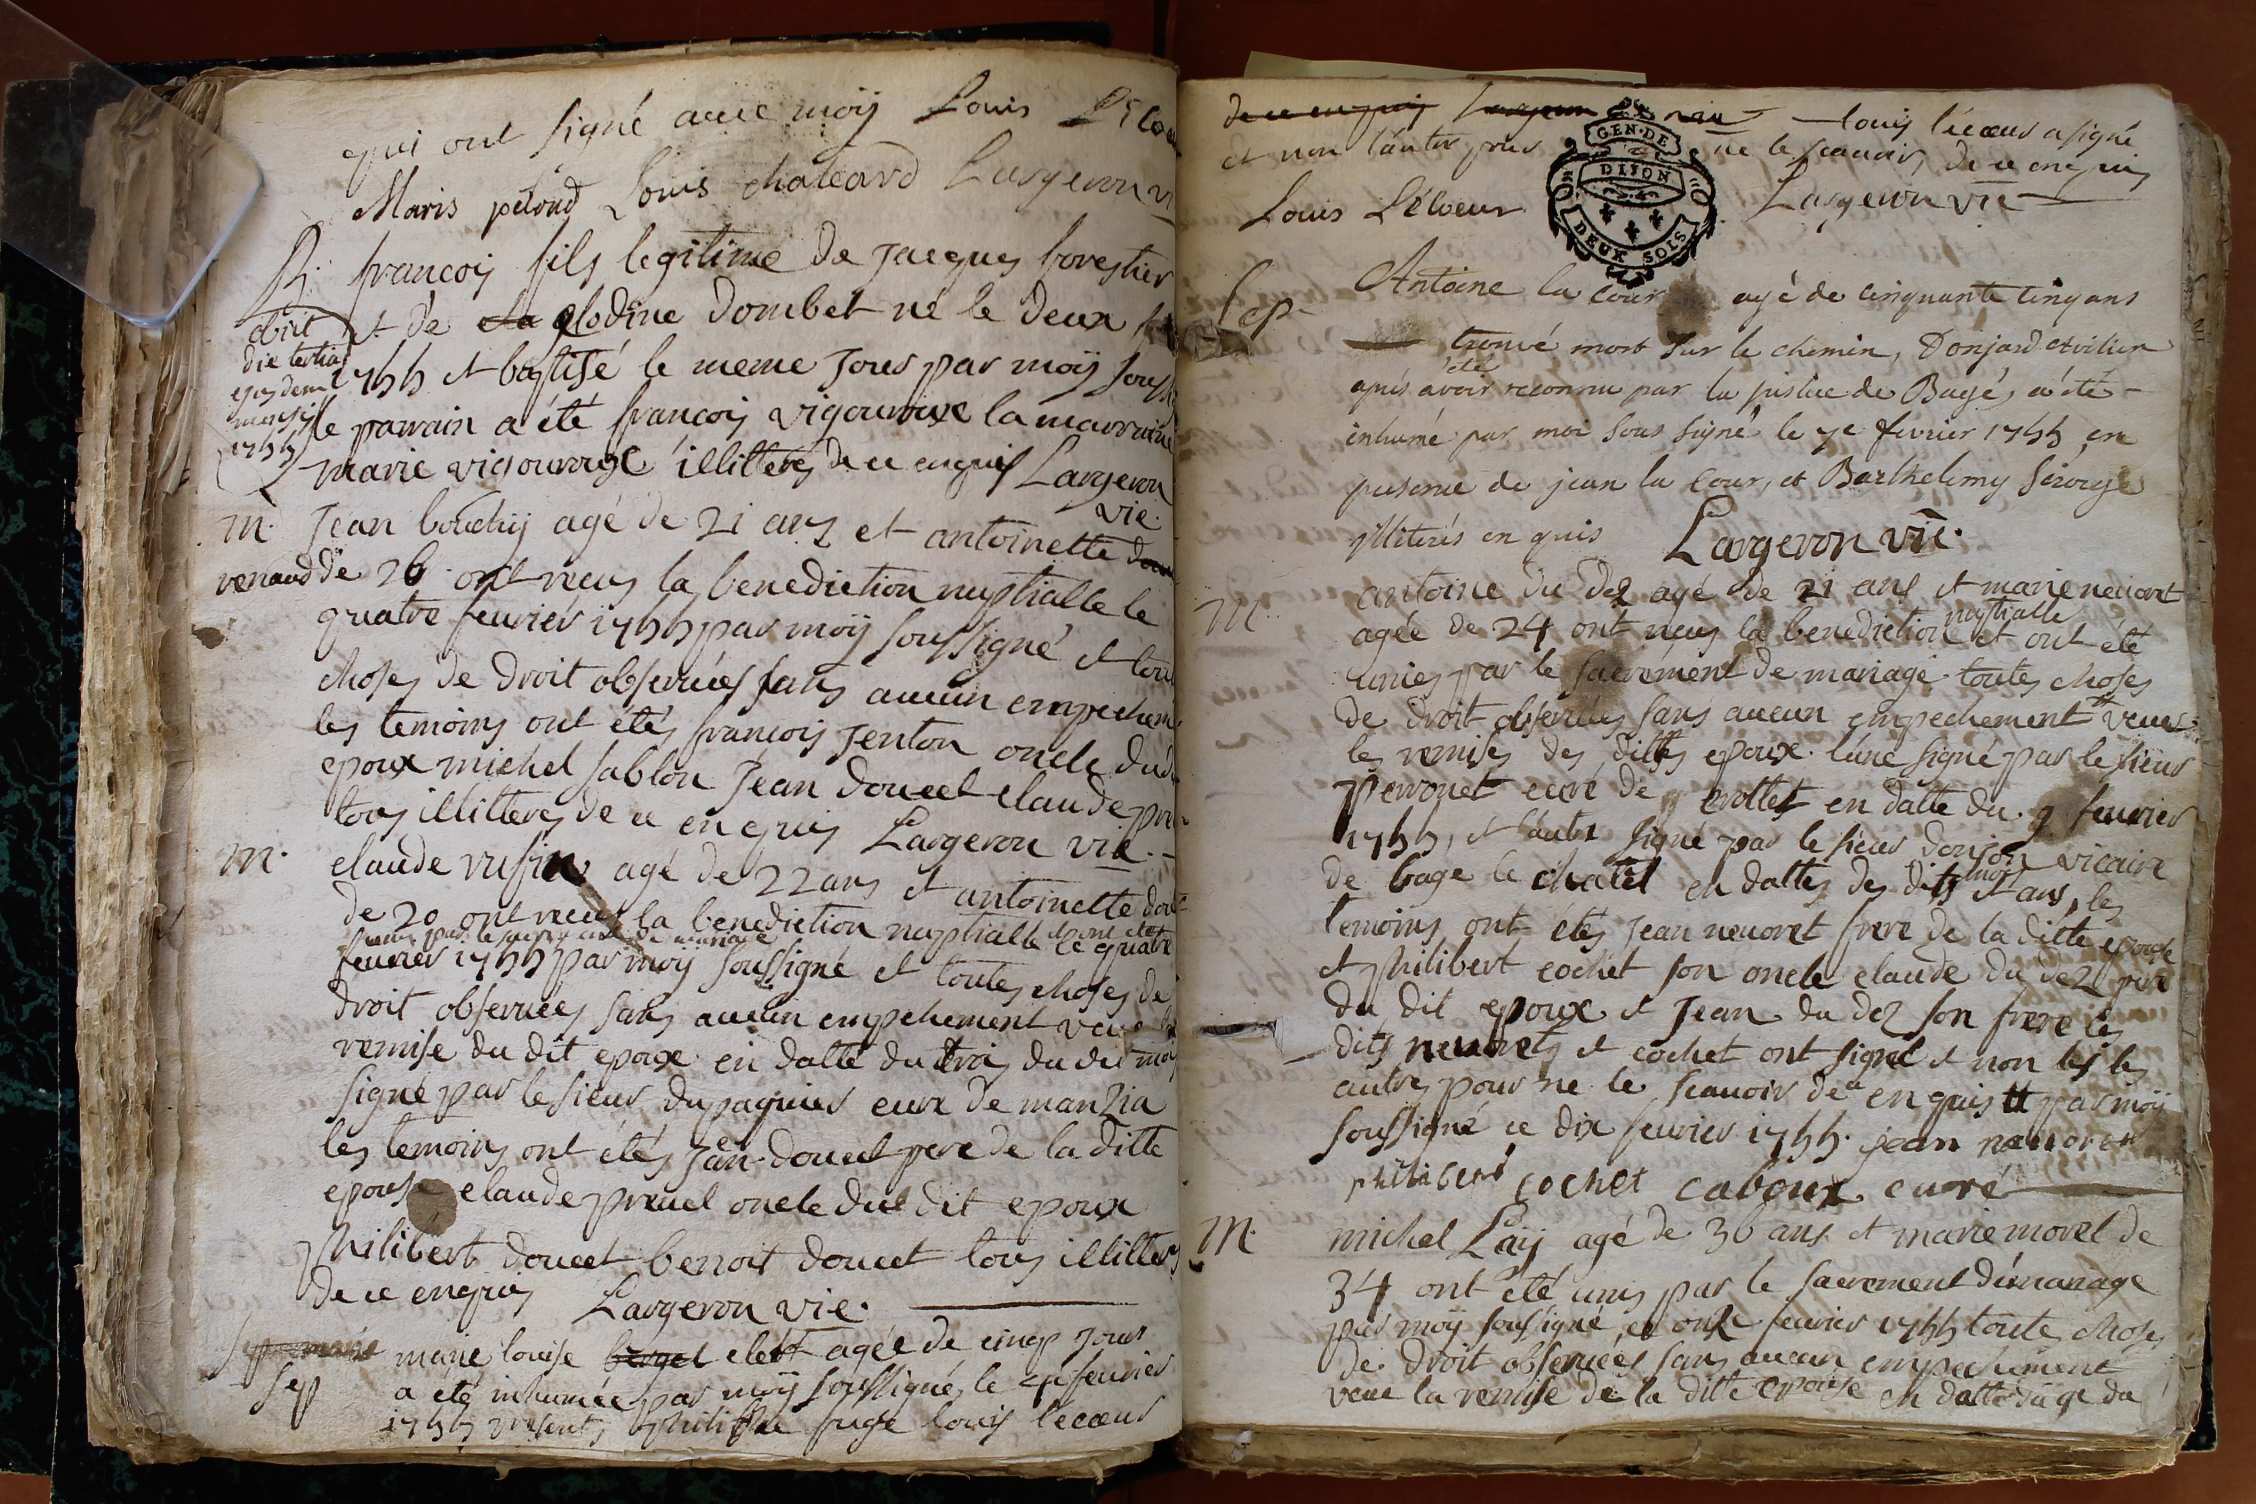 qui ont signé avec moÿ Louis
Maris peloud Louis chaleard Largeron
B. francois fils legitime de jacques forestier
obiit
et de clodine dombet né le deux
die tertia
ejusdem
mensis
1755
1755 et baptisé le meme jour par moÿ
le parrain a été francois vigouroux la marraine
marie vigouroux illitteres de ce enquis Largeron
vic.
M. Jean bouchy agé de 21 ans et antoinette
renaud de 26 ont recus la benediction nuptialle le
quatre fevrier 1755 par moÿ soussigné et
choses de droit observées sans aucun
les temoins ont étés francois jenton oncle
epoux michel sablon Jean doucet claude
tous illitteres de ce enquis Largeron vic.
M. claude rufin agé de 22 ans et antoinette
de 20 ont recus la benediction nuptialle et ont été
unis par le sacrement de mariage le quatre
fevrier 1755 par moÿ soussigné et toutes choses de
droit observées sans aucun empechement veue
remise du dit epoux en datte du trois du dit
signé par le sieur dupaquier curé de manzia
les temoins ont étés jean doucet pere de la ditte
epouse claude preuel oncle du dit epoux
philibert doucet benoit doucet tous illitteres
de ce enquis Largeron vic.
Sep marie louise agée de cinq jours
a été inhumée par moÿ soussigné le fevrier
1755 presents louis lecoeur
Louis lecoeur a signé
et non l'autre pour ne le scavoir, de ce enquis
GEN. DE
DIJON
DEUX SOLS
Louis Lécoeur Largeron vic
Sep. Antoine la cour agé de cinquante cinq ans
trouvé mort sur le chemin,
après avoir été reconnu par la justice de Bagé, a été
inhumé par moi sous signé le 7e fevrier 1755 en
presence de jean la cour, et Barthelemy
illiterés enquis Largeron vic.
M. antoine du dez agé de 21 ans et marie nevoret
agée de 24 ont recus la benediction nuptialle et ont été
unies par le sacrement de mariage toutes choses
de droit observées sans aucun empechement veues
les remises des dittes epoux l'une signé par le sieur
perroquet curé de crottet en datte du 9 fevrier
1755, et l'autre signé par le sieur donjon vicaire
de bage le chatel en datte des dits mois et ans, les
temoins ont étés jean nevoret frere de la ditte epouse
et philibert cochet son oncle claude du dez pere
du dit epoux et Jean du dez son frere les
dits nevoret et cochet ont signé et non les
autres pour ne le scavoir de ce enquis par moÿ
soussigné ce dix fevrier 1755. jean nevoret
philibert cochet caboux curé
M. michel Laÿ agé de 36 ans et marie morel de
34 ont été unis par le sacrement de mariage
par moÿ soussigné ce onze fevrier 1755 toutes choses
de droit observées sans aucun empechement
veue la remise de la ditte epouse en datte du 9e du